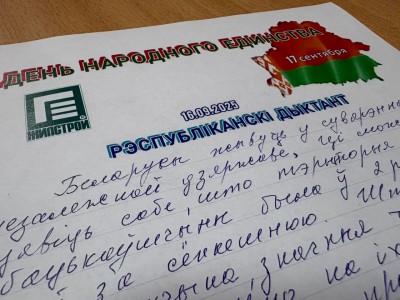 ДЕНЬ НАРОДНОГО ЕДИНСТВА
17 сентября
ЖИЛСТРОЙ
16.09.2025
РЭСПУБЛІКАНСКІ ДЫКТАНТ
Беларусы жывуць у суверэннай
незалежнай дзяржаве, ці мож
ўявіць сабе, што тэрыторыя
Бацькаўшчыны была ў 2 р
за сённешнюю.
значная
на іх